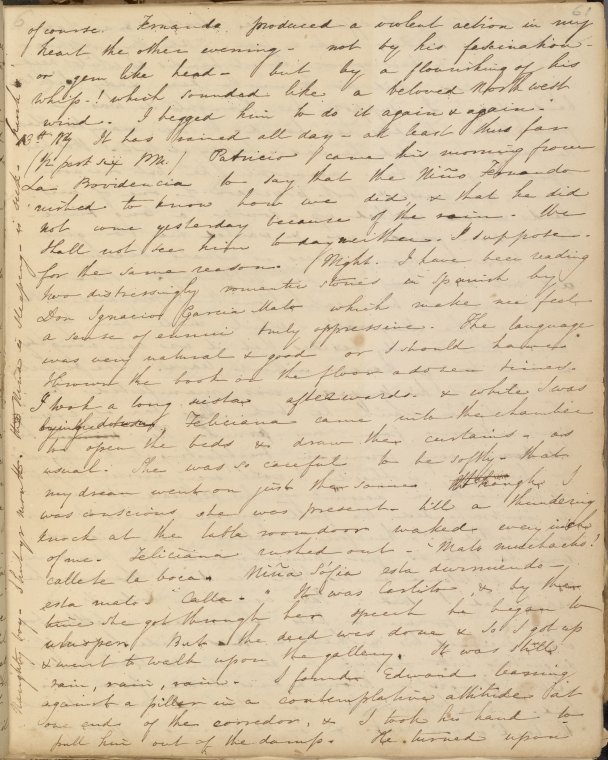 6
of course. Fernando produced a violent action in my
heart the other evening - not by his fascination -
or gem like head - but by a flourishing of his
whip -! which sounded like a beloved North west
wind. I begged him to do it again & again.
13th It has rained all day - at least thus far
(½ past six PM.) Patricio came this morning from
La Providencia to say that the Niño Fernando
wished to know how we did, & that he did
not come yesterday because of the rain. We
shall not see him today neither. I suppose.
for the same reason. Night. I have been reading
two distressingly romantic stories in Spanish by
Don Ignacio Garcia Malo which make me feel
a sense of ennui truly oppressive. The language
was very natural & good or I should have
thrown the book on the floor a dozen times.
I took a long siesta afterwards. & while I was
Feliciana came into the chamber
to open the beds & draw the curtains - as
usual. She was so careful to be softly - that
my dream went on just the same though I
was conscious she was present - till a thundering
knock at the table room door waked every inch
of me. Feliciana rushed out - "Malo muchacho!
callete la boca. Niña Sofia esta durmiendo -
esta malo! Calla - " It was Carlito, & by the
time she got through her speech he began to
whisper. But the deed was done & so I got up
& went to walk upon the gallery. It was still
rain, rain, rain. I found Edward leaning
against a pillar in a contemplative attitude at
one end of the corridor, & I took his hand to
pull him out of the damp. He turned upon
Naughty boy - Shut your mouth. Niña is sleeping - is sick - hush -